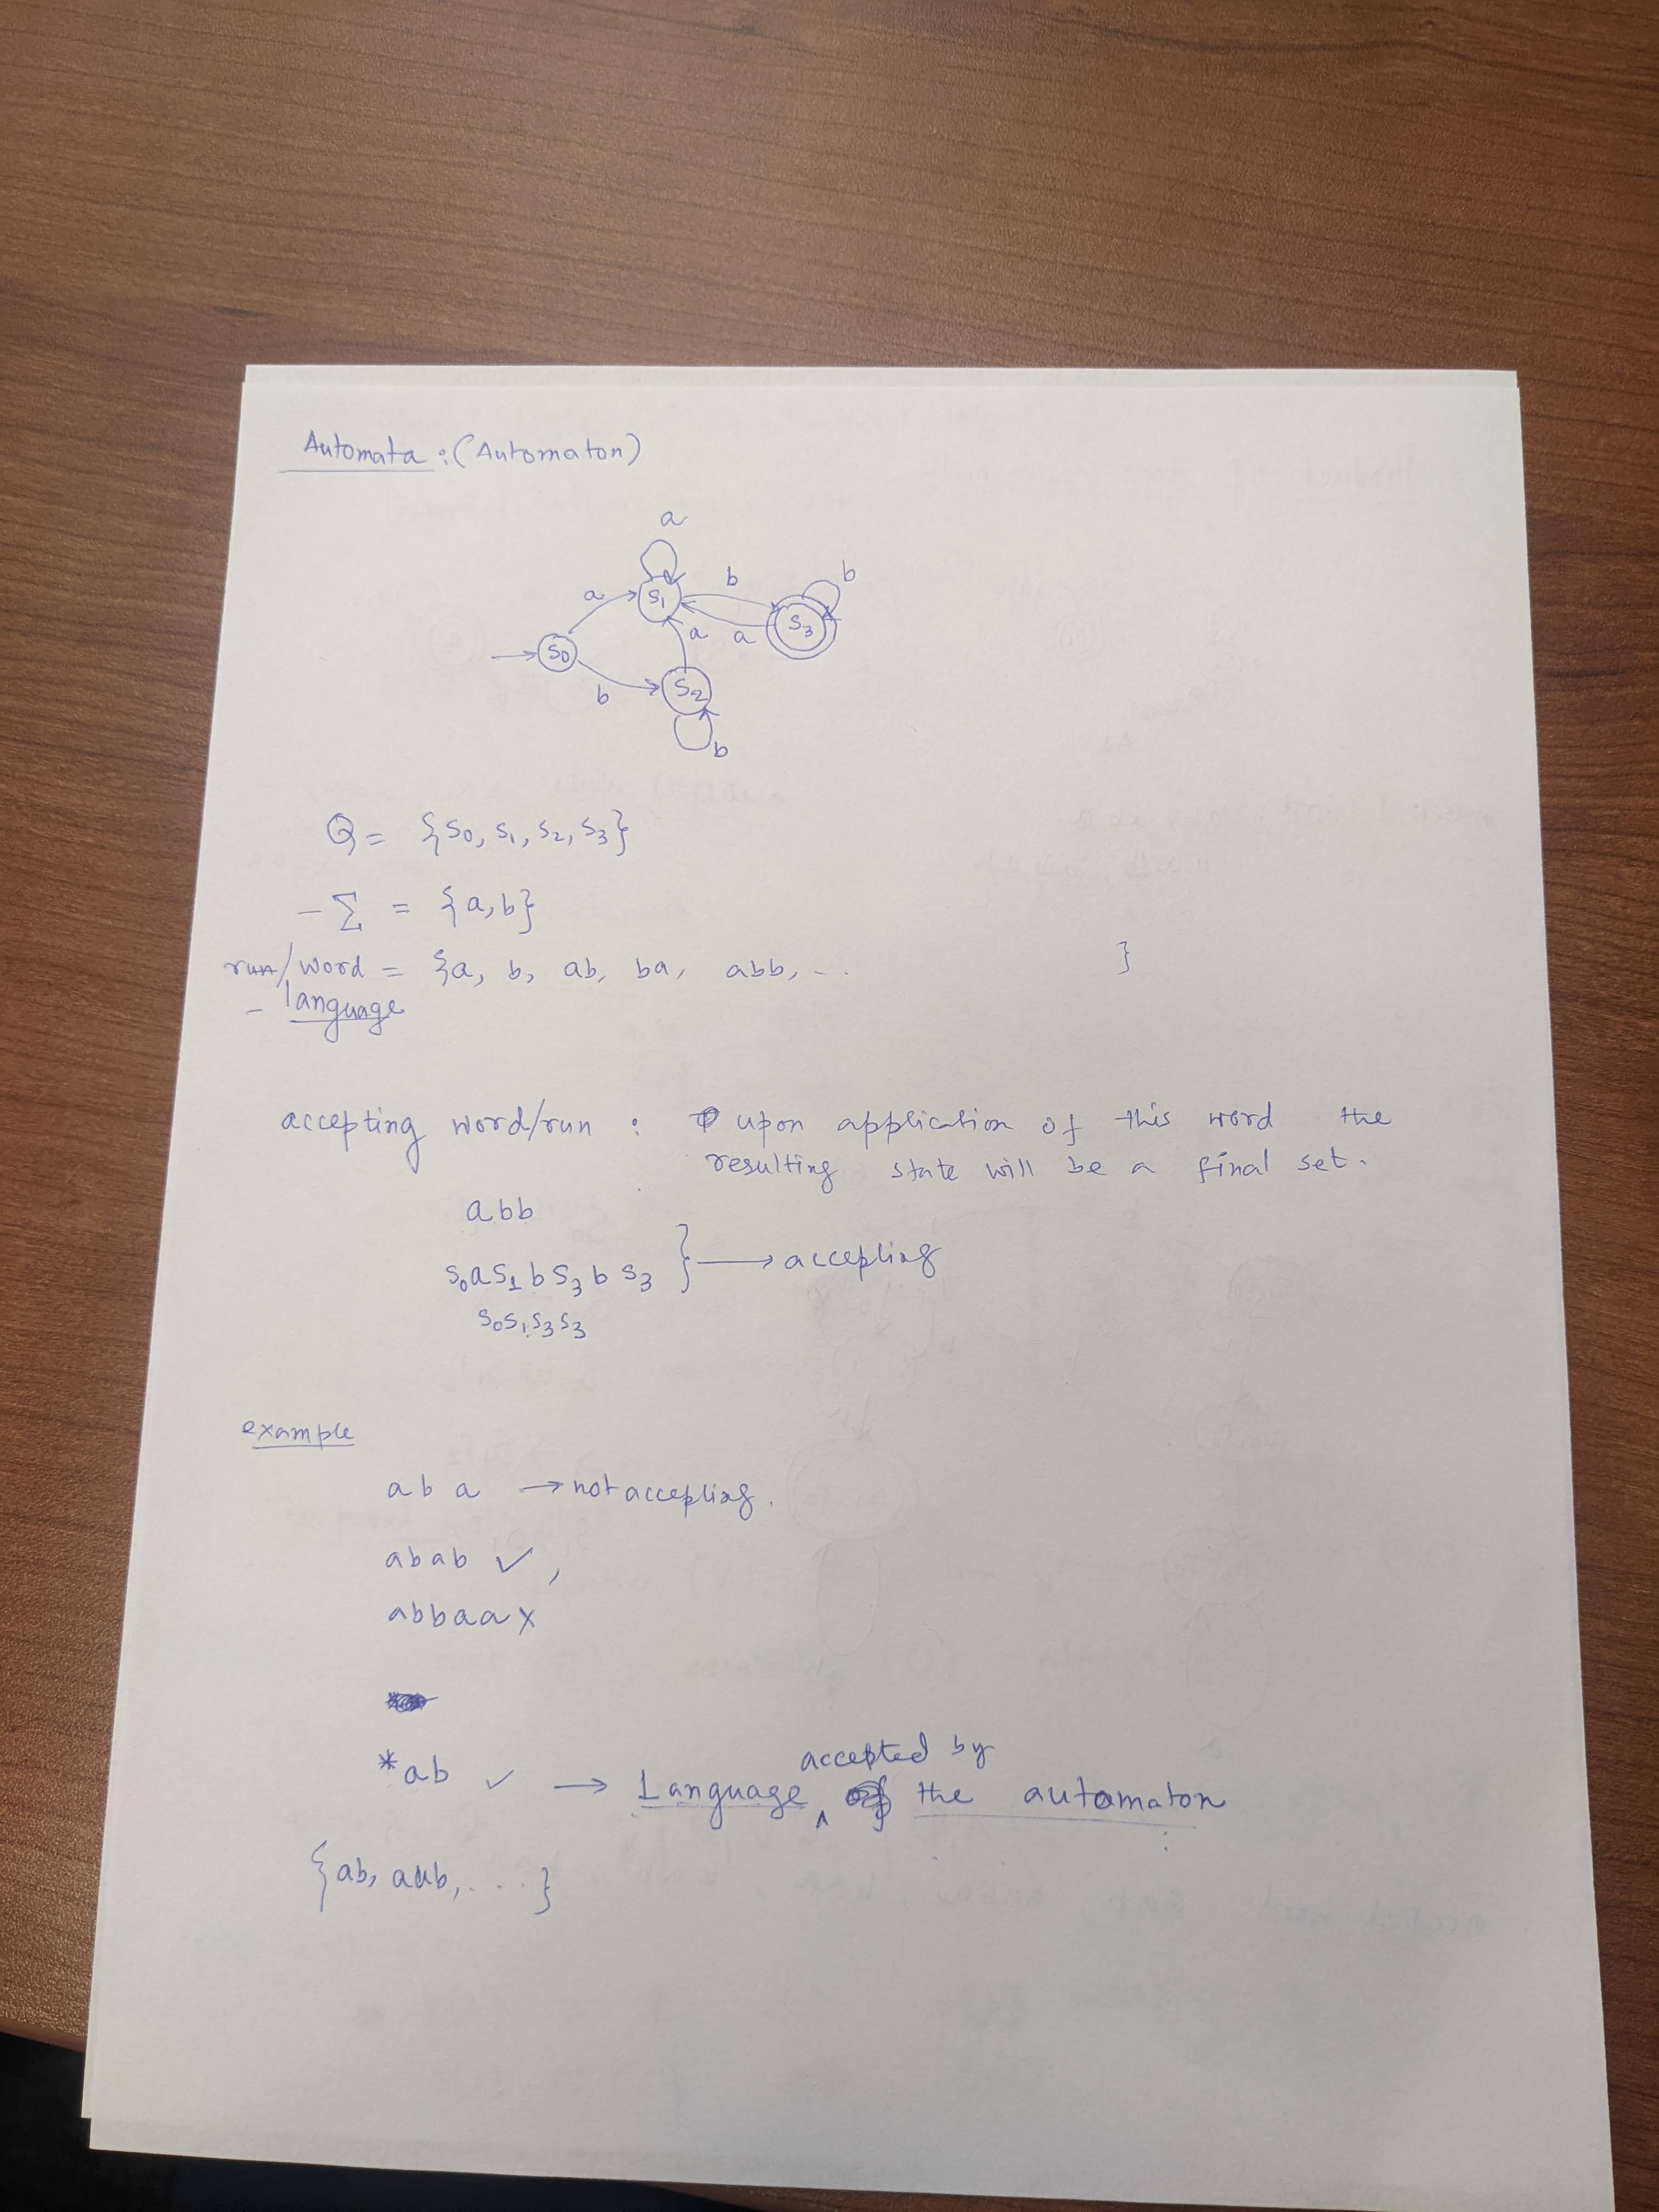 Automata : (Automaton)
a
b
b
a
S1
S3
a
a
S0
S2
b
b
Q = {S0, S1, S2, S3}
- Σ = {a, b}
run/word = {a, b, ab, ba, abb, ... }
- language
accepting word/run : upon application of this word the
resulting state will be a final set.
abb
S0 a S1 b S3 b S3 } → accepting
S0 S1 S3 S3
example
a b a → not accepting.
abab ✓,
abbaa x
*ab ✓ → Language accepted by the automaton
{ab, aab, ... }